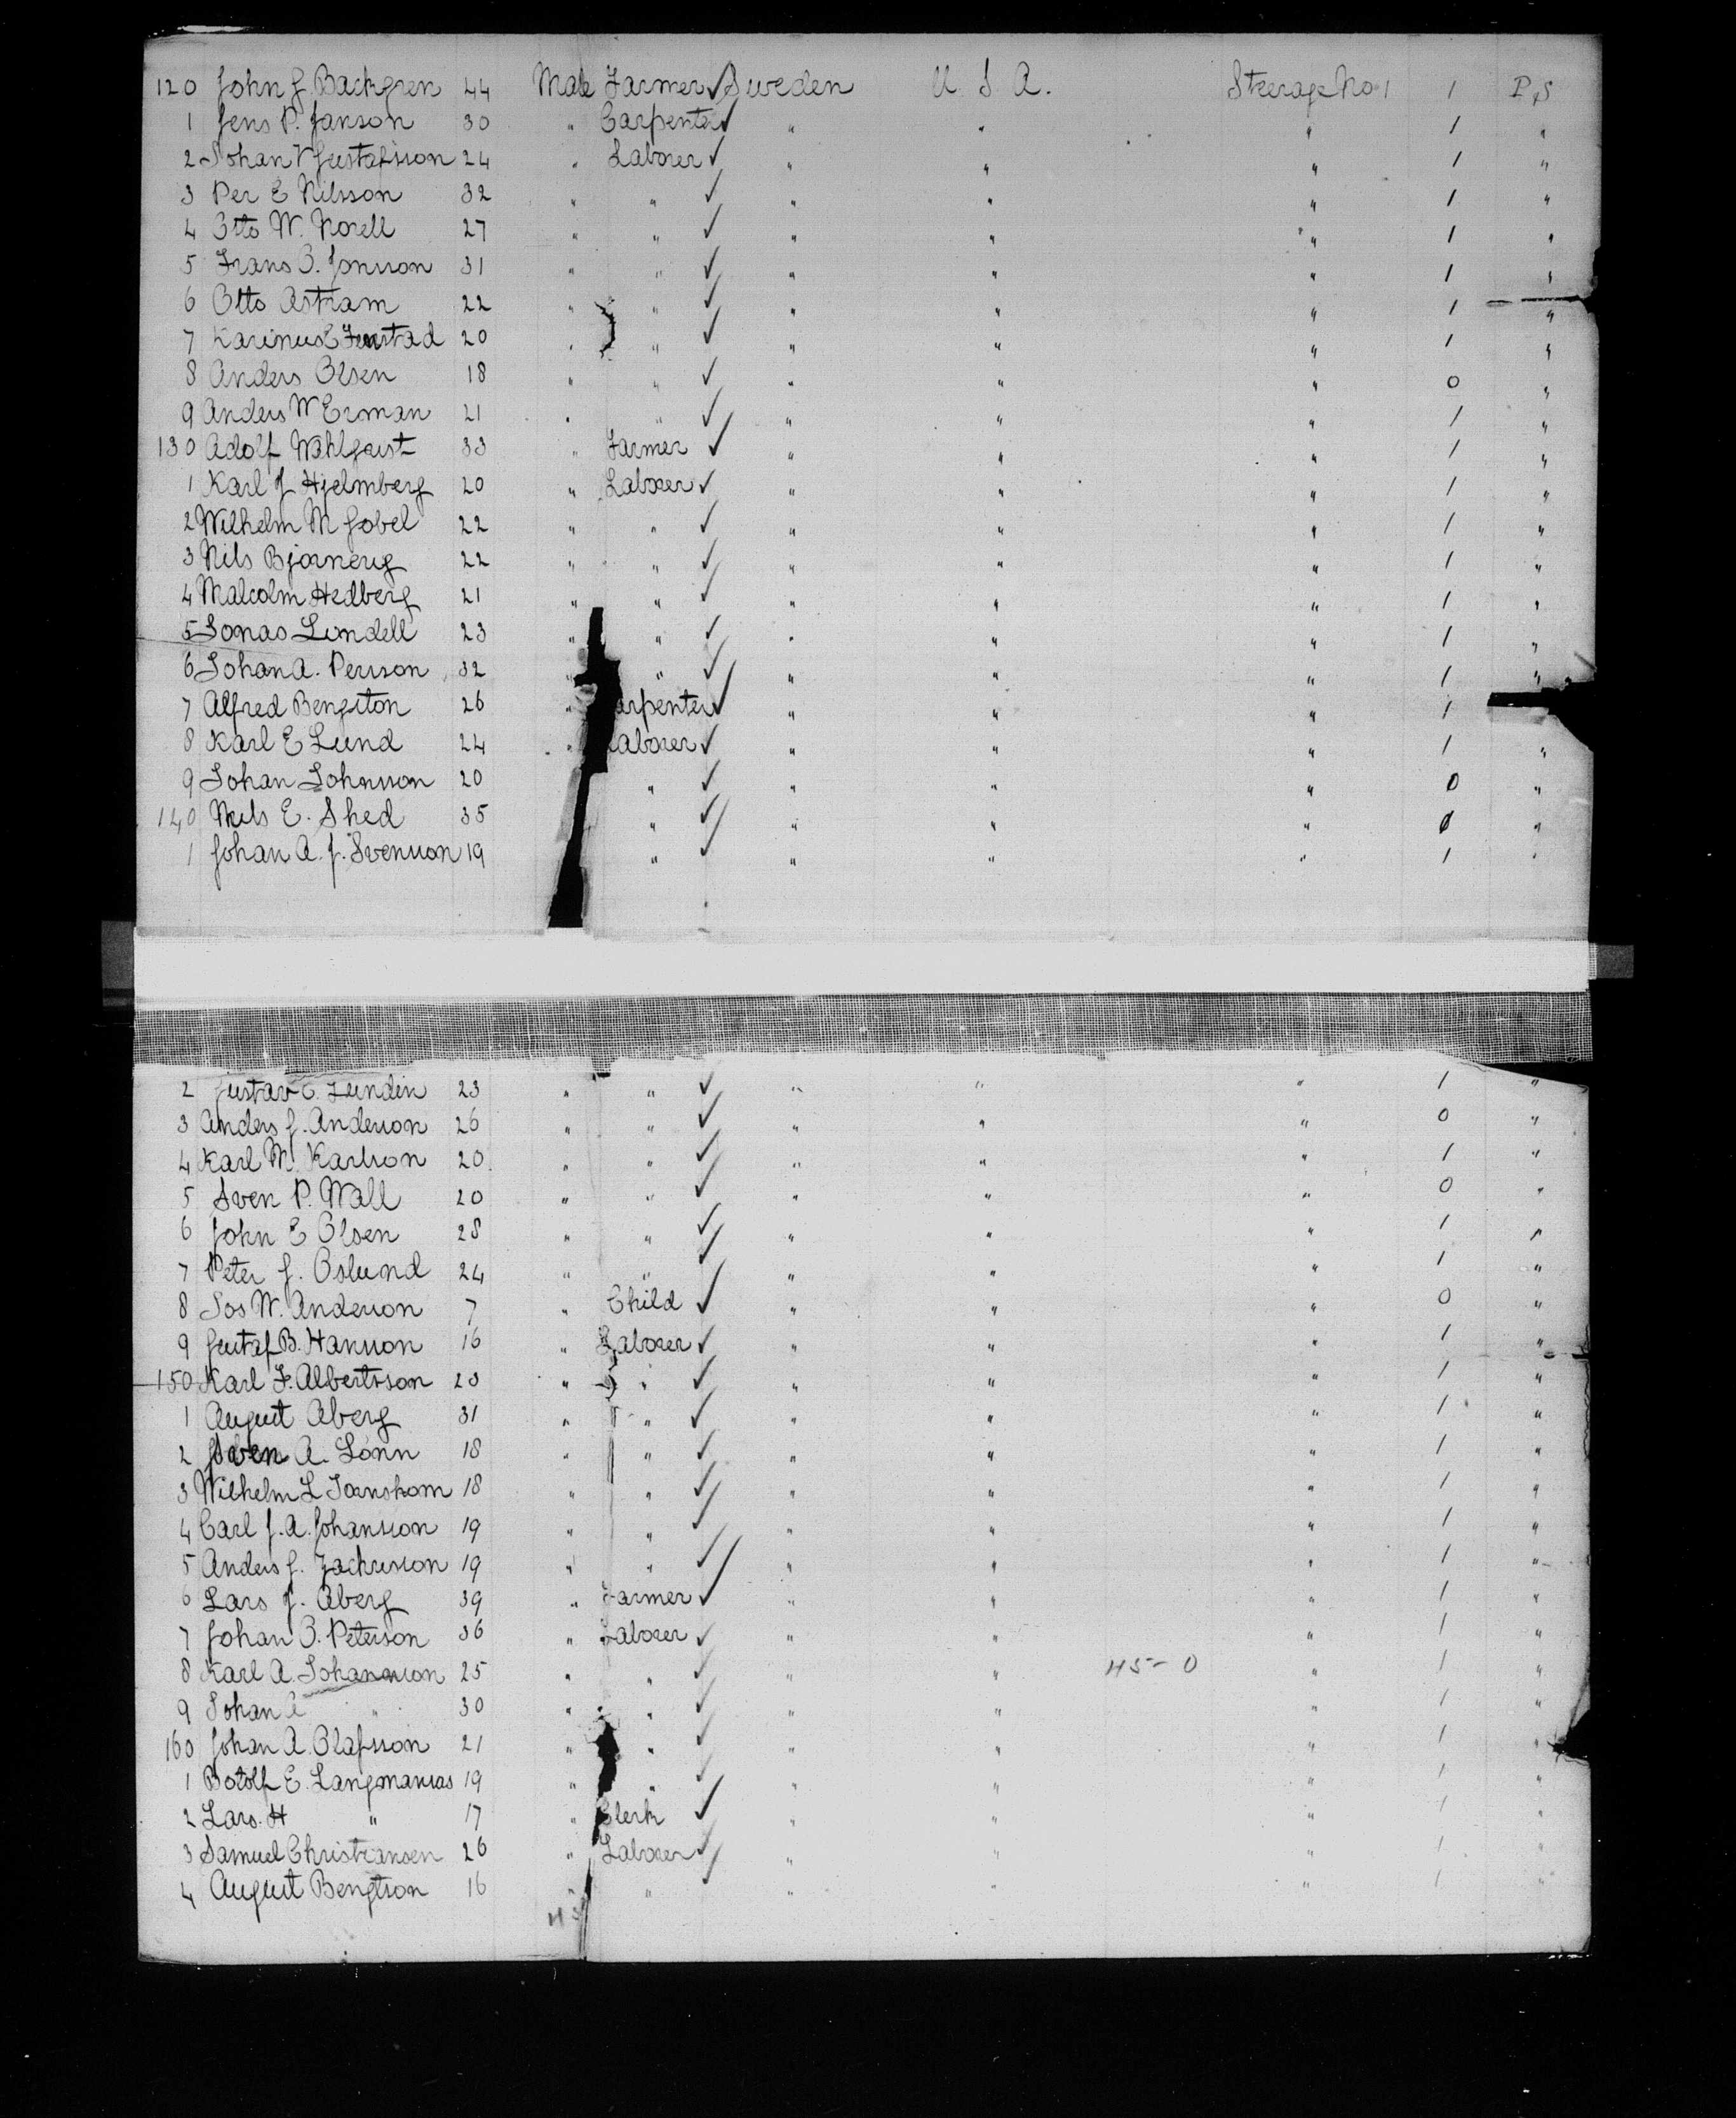 120 John J. Backgren 44 Male Farmer ✓ Sweden U. S. A. Steerage No 1 1 P.S
1 Jens P. Janson 30 " Carpenter ✓ " " " 1 "
2 Johan V Gustafsson 24 " Laborer ✓ " " " 1 "
3 Per E Nilsson 32 " " ✓ " " " 1 "
4 Otto W. Norell 27 " " ✓ " " " 1 "
5 Frans O. Jonsson 31 " " ✓ " " " 1 "
6 Otto Astram 22 " " ✓ " " " 1 "
7 Karinus E 20 " " ✓ " " " 1 "
8 Anders Olsen 18 " " ✓ " " " 0 "
9 Anders W Erman 21 " " ✓ " " " 1 "
130 Adolf Wahlqvist 33 " Farmer ✓ " " " 1 "
1 Karl J Hjelmberg 20 " Laborer ✓ " " " 1 "
2 Wilhelm M Gobel 22 " " ✓ " " " 1 "
3 Nils 22 " " ✓ " " " 1 "
4 Malcolm Hedberg 21 " " ✓ " " " 1 "
5 Jonas Lindell 23 " " ✓ " " " 1 "
6 Johan A. Persson 32 " " ✓ " " " 1 "
7 Alfred Bengston 26 " arpenter ✓ " " " 1
8 Karl E Lund 24 " aborer ✓ " " " 1 "
9 Johan Johnsson 20 " ✓ " " " 0 "
140 Nels E. Shed 35 " ✓ " " " 0 "
1 Johan A. J. Svensson 19 " ✓ " " " 1 "
2 Gustav E. Lundin 23 " " ✓ " " " 1 "
3 Anders J. Andersson 26 " " ✓ " " " 0 "
4 Karl W. Karlsson 20 " " ✓ " " " 1 "
5 Sven P. Wall 20 " " ✓ " " " 0 "
6 John E Olsen 28 " " ✓ " " " 1 "
7 Peter J. Oslund 24 " " ✓ " " " 1 "
8 Jos W. Andersson 7 " Child ✓ " " " 0 "
9 Gustaf B. Hansson 16 " Laborer ✓ " " " 1 "
150 Karl F. Albertsson 23 " " ✓ " " " 1 "
1 August Aberg 31 " " ✓ " " " 1 "
2 Sven A. Lonn 18 " " ✓ " " " 1 "
3 Wilhelm L 18 " " ✓ " " " 1 "
4 Carl J. A. Johansson 19 " " ✓ " " " 1 "
5 Anders J. Zachrisson 19 " " ✓ " " " 1 "
6 Lars J. Aberg 39 " Farmer ✓ " " " 1 "
7 Johan O. Peterson 36 " Laborer ✓ " " " 1 "
8 Karl A. Johansson 25 " " ✓ " " 45-0 " 1 "
9 Johan E " 30 " " ✓ " " " 1 "
160 Johan A. Olafsson 21 " " ✓ " " " 1 "
1 Botolf E. Langmansas 19 " " ✓ " " " 1 "
2 Lars. H " 17 " Clerk ✓ " " " 1 "
3 Samuel Christiansen 26 " Laborer ✓ " " " 1 "
4 August Bengtson 16 " " ✓ " " " 1 "
45